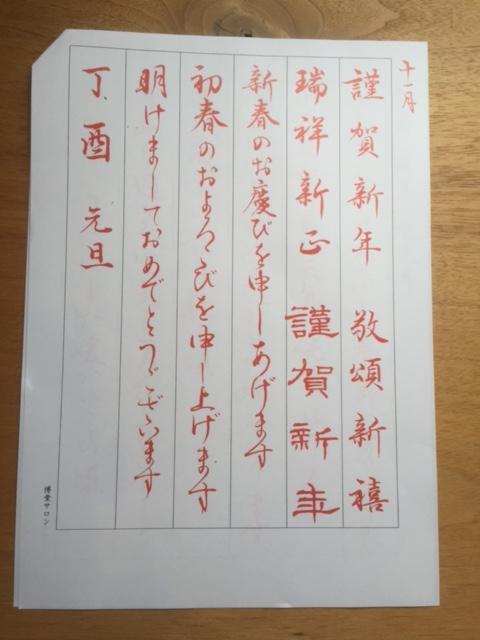 十一月
謹賀新年 敬頌新禧
瑞祥新正 謹賀新年
新春のお慶びを申しあげます
初春のおよろこびを申し上げます
明けましておめでとうございます
丁酉 元旦
博堂サロン